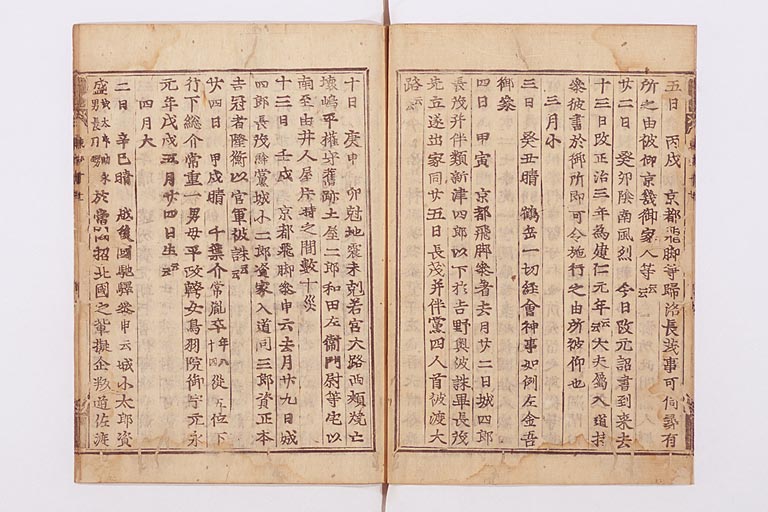 五日 丙戌 京都飛脚等歸洛長茂事可伺尋有
所之由被仰京畿御家人等云云
廿二日 癸卯陰南風烈 今日改元詔書到来去
十三日改正治三年為建仁元年云云大夫属入道持
参彼書於御所即可令施行之由所被仰也
三月小
三日 癸丑晴 鶴岳一切経會神事如例左金吾
御参
四日 甲寅 京都飛脚参着去月廿二日城四郎
長茂并伴類新津四郎以下於吉野奥被誅畢長茂
先立遂出家同廿五日長茂并伴黨四人首被渡大
路云云
十日 庚申 卯尅地震未尅若宮大路西頬焼亡
壊嶋平権守舊跡土屋二郎和田左衛門尉等宅以
南至由井人屋片時之間数十災
十三日 壬戌 京都飛脚参申云去月廿九日城
四郎長茂餘黨城小二郎資家入道同三郎資正本
吉冠者隆衡以官軍被誅云云
廿四日 甲戌晴 千葉介常胤卒年八十四従五位下
行下総介常重一男母平政幹女鳥羽院御宇元永
元年戊戌五月廿四日生云云
四月大
二日 辛巳晴 越後國馳驛参申云城小太郎資
盛 於當國招北國之輩擬企叛逆佐渡